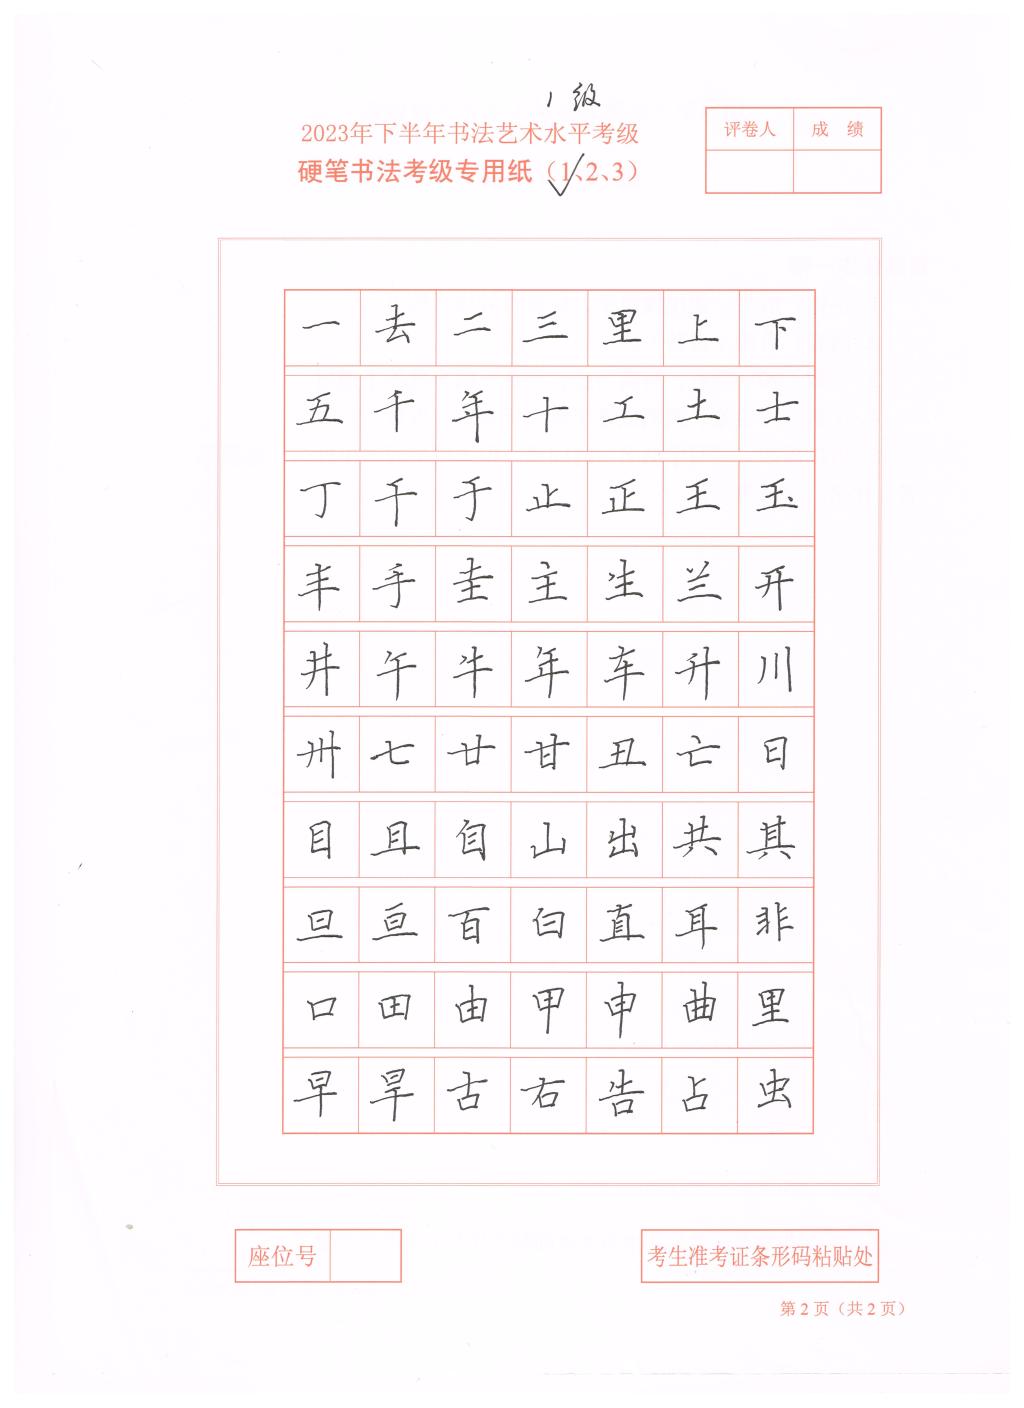 1级
2023年下半年书法艺术水平考级
硬笔书法考级专用纸（1、2、3）
评卷人 成 绩
一去二三里上下
五千年十工土士
丁千于止正王玉
丰手圭主生兰开
井午牛年车升川
卅七廿甘丑亡日
目且自山出共其
旦亘百白直耳非
口田由甲申曲里
早旱古右告占虫
座位号
考生准考证条形码粘贴处
第2页（共2页）